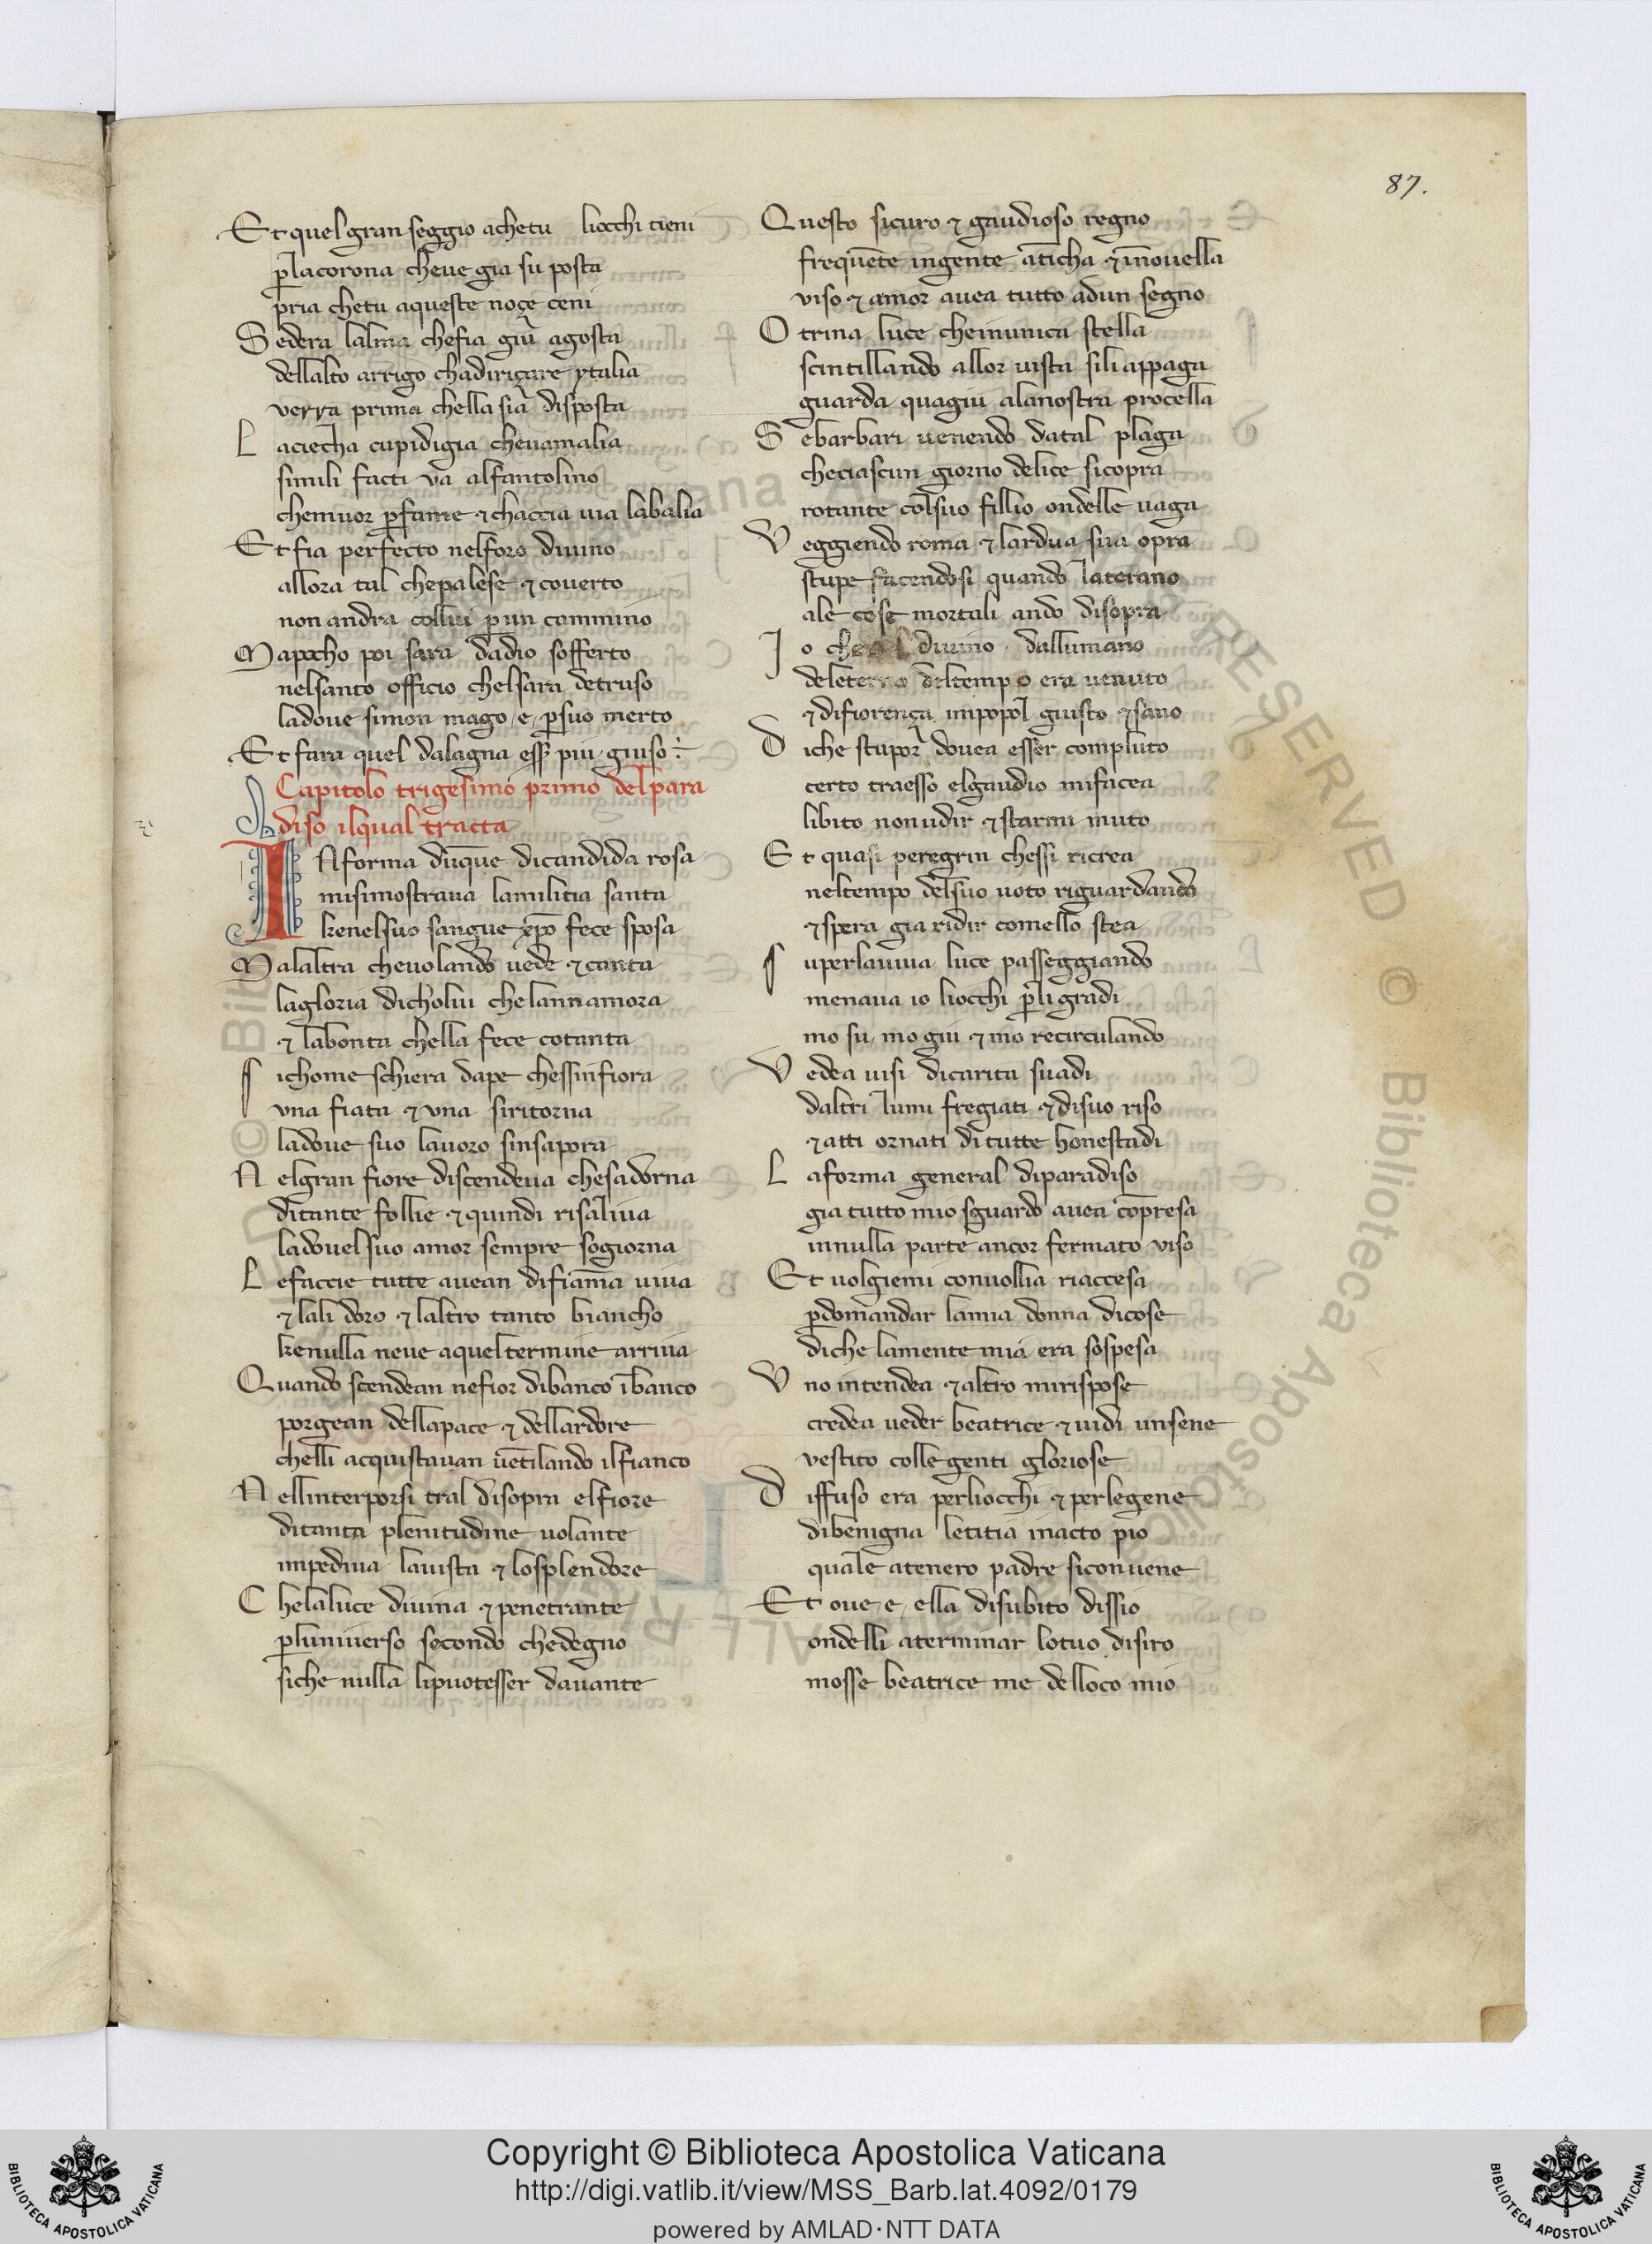 87.
Et quel gran seggio achetu liocchi tieni
p̄ lacorona cheue gia su posta
pria chetu aqueste noçe ceni
Sedera lalma chefia giu agosta
dellalto arrigo chadiriçare ytalia
verra prima chella sia disposta
Laciecha cupidigia cheuamalia
simili facti va alfantolino
chemuor p̄fame ⁊ chaccia uia labalia
Et fia perfecto nelforo diuino
allora tal chepalese ⁊ couerto
non andra collui p̄ un cammino
Mapocho poi sara dadio sofferto
nelsanto officio chelsara detruso
ladoue simon mago, e, p̄suo merto
Et fara quel dalagna ess̄ piu giuso:
Capitolo trigesimo primo delpara
diso ilqual tracta
INforma dūque dicandida rosa
misimostraua lamilitia santa
kenelsuo sangue xp̄o fece sposa
Malaltra cheuolando uede ⁊ canta
lagloria dicholui chelannamora
⁊ labonta chella fece cotanta
Sichome schiera dape chessinfiora
vna fiata ⁊ vna siritorna
ladoue suo lauoro sinsapora
Nelgran fiore discendeua chesadorna
ditante follie ⁊ quindi risaliua
ladouelsuo amor sempre sogiorna
Lefaccie tutte auean difiam̄a uiua
⁊ lali doro ⁊ laltro tanto biancho
kenulla neue aqueltermine arriua
Quando scendean nefior dibanco ībanco
porgean dellapace ⁊ dellardore
chelli acquistauan uētilando ilfianco
Nellinterporsi tral disopra elfiore
ditanta plenitudine uolante
impediua lauista ⁊ losplendore
Chelaluce diuina ⁊ penetrante
p̄luniuerso secondo chedegno
siche nulla lipuotesser dauante
Questo sicuro ⁊ gaudioso regno
frequēte ingente āticha ⁊ īnouella
viso ⁊ amor auea tutto adun segno
O trina luce cheinunica stella
scintillando allor uista sili appaga
guarda quagiu alanostra procella
Sebarbari uenendo datal plaga
checiascun giorno delice sicopra
rotante colsuo fillio ondelle uaga
Veggiendo roma ⁊ lardua sua opra
stupefacendosi quando laterano
ale cose mortali ando disopra
Io che al diuino dallumano
deleterno deltempo era uenuto
⁊ difiorença inpopol giusto ⁊ sano
Diche stupor douea esser compiuto
certo traesso elgaudio mifacea
libito nonudir ⁊ starmi muto
Et quasi peregrin chessi ricrea
neltempo delsuo uoto riguardando
⁊ spera gia ridir comello stea
Superlauiua luce passeggiando
menaua io liocchi p̄li gradi
mo su, mo giu ⁊ mo recirculando
Vedea uisi dicarita suadi
daltri lumi fregiati ⁊ disuo riso
⁊ atti ornati di tutte honestadi
Laforma general diparadiso
gia tutto mio sguardo auea cōpresa
innulla parte ancor fermato viso
Et uolgiemi conuollia riaccesa
p̄domandar lamia donna dicose
diche lamente mia era sospesa
Vno intendea ⁊ altro mirispose
credea ueder beatrice ⁊ uidi unsene
vestito colle genti gloriose
Diffuso era perliocchi ⁊ perlegene
dibenigna letitia inacto pio
quale atenero padre siconuene
Et oue, e, ella disubito dissio
ondelli aterminar lotuo disiro
mosse beatrice me delloco mio
Copyright © Biblioteca Apostolica Vaticana
http://digi.vatlib.it/view/MSS_Barb.lat.4092/0179
powered by AMLAD·NTT DATA
BIBLIOTECA APOSTOLICA VATICANA
BIBLIOTECA APOSTOLICA VATICANA